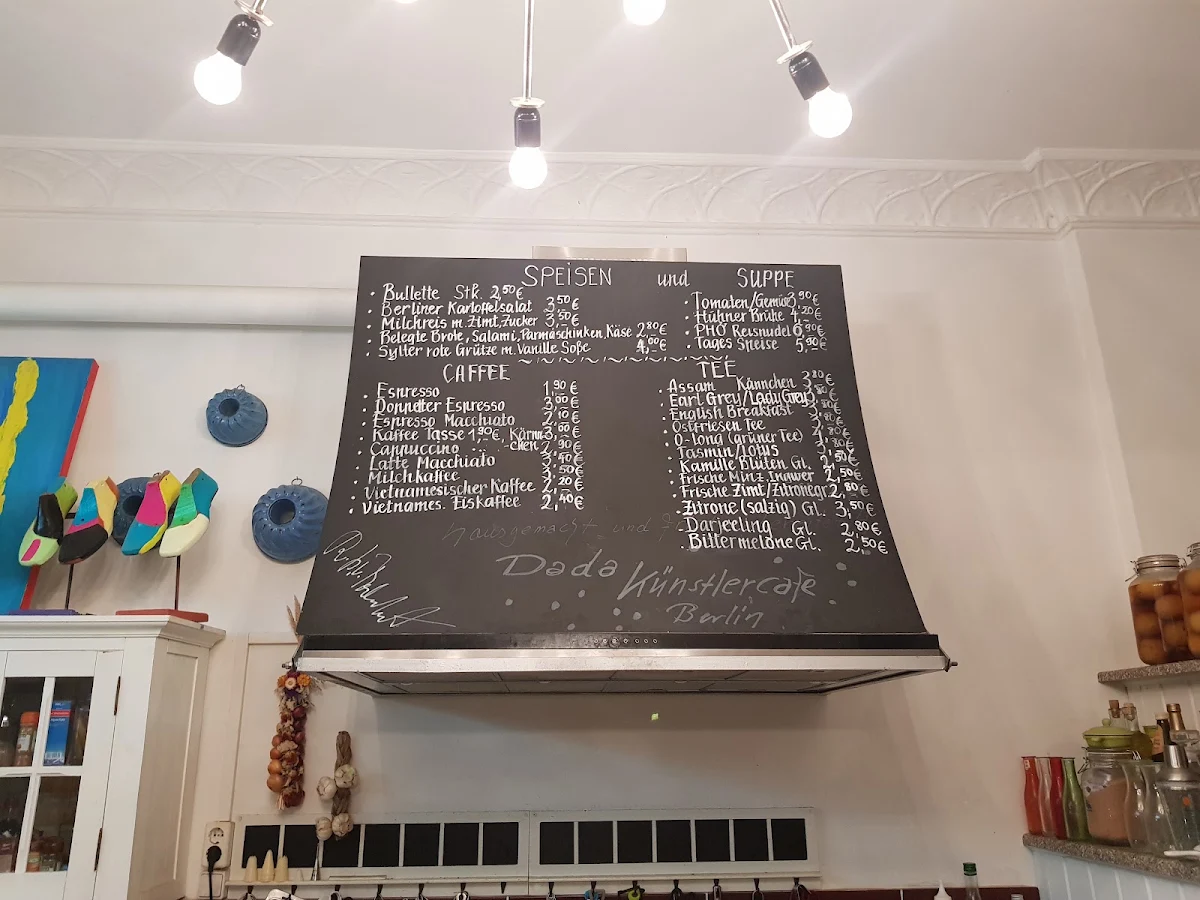 SPEISEN und SUPPE
• Bullette Stk. 2,50€
• Berliner Kartoffelsalat 3,50€
• Milchreis m. Zimt, Zucker 3,50€
• Belegte Brote, Salami, Parmaschinken, Käse 2,80€
• Sylter rote Grütze m. Vanille Soße 4,00€
• Tomaten/Gemüse 3,90€
• Hühner Brühe 4,20€
• PHO Reisnudel 6,90€
• Tages Speise 5,90€
CAFFEE
• Espresso 1,90€
• Doppelter Espresso 3,00€
• Espresso Macchiato 2,10€
• Kaffee Tasse 1,90€, Känn- 3,00€
chen
• Cappuccino 2,90€
• Latte Macchiato
• Milchkaffee
• Vietnamesischer Kaffee 2,20€
• Vietnames. Eiskaffee 2,40€
TEE
• Assam Kännchen 3,80€
• Earl Grey/Lady Grey
• English Breakfast
• Ostfriesen Tee
• O-long (grüner Tee)
• Jasmin/Lotus
• Kamille Blüten Gl. 2,50€
• Frische Minz. Ingwer 2,50€
• Frische Zimt/Zitronegr. 2,80€
• Zitrone (salzig) Gl. 3,50€
• Darjeeling Gl. 2,80€
• Bittermelone Gl. 2,50€
hausgemacht und
Dada Künstlercafé
Berlin